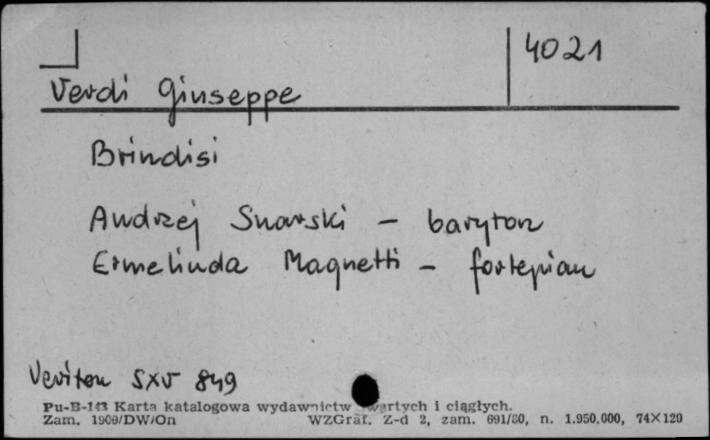 4021
Verdi Giuseppe
Brindisi
Andrzej Snarski – baryton
Ermelinda Magnetti – fortepian
Veriton SXV 849
Pu-B-143 Karta katalogowa wydawnictw zwartych i ciągłych.
Zam. 1909/DW/On WZGraf. Z-d 2, zam. 691/80, n. 1.950.000, 74×120